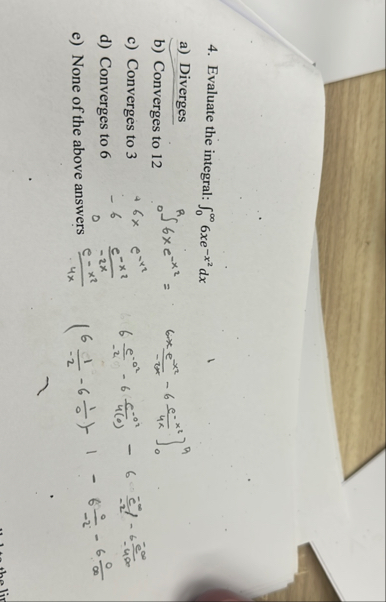 4. Evaluate the integral: ∫₀^∞ 6xe^{-x²} dx
a) Diverges
b) Converges to 12
c) Converges to 3
d) Converges to 6
e) None of the above answers
₀∫^R 6xe^{-x²} =
+ 6x e^{-x²}
- 6 e^{-x²}/-2x
0 e^{-x²}/4x
6x e^{-x²}/-2x - 6 e^{-x²}/4x ]₀^R
6 e^{-0²}/-2 - 6 e^{-0²}/4(0) - 6 e^{-∞}/-2 - 6 e^{-∞}/-4∞
(6 1/-2 - 6 1/0) - 1 - 6 0/-2 - 6 0/∞